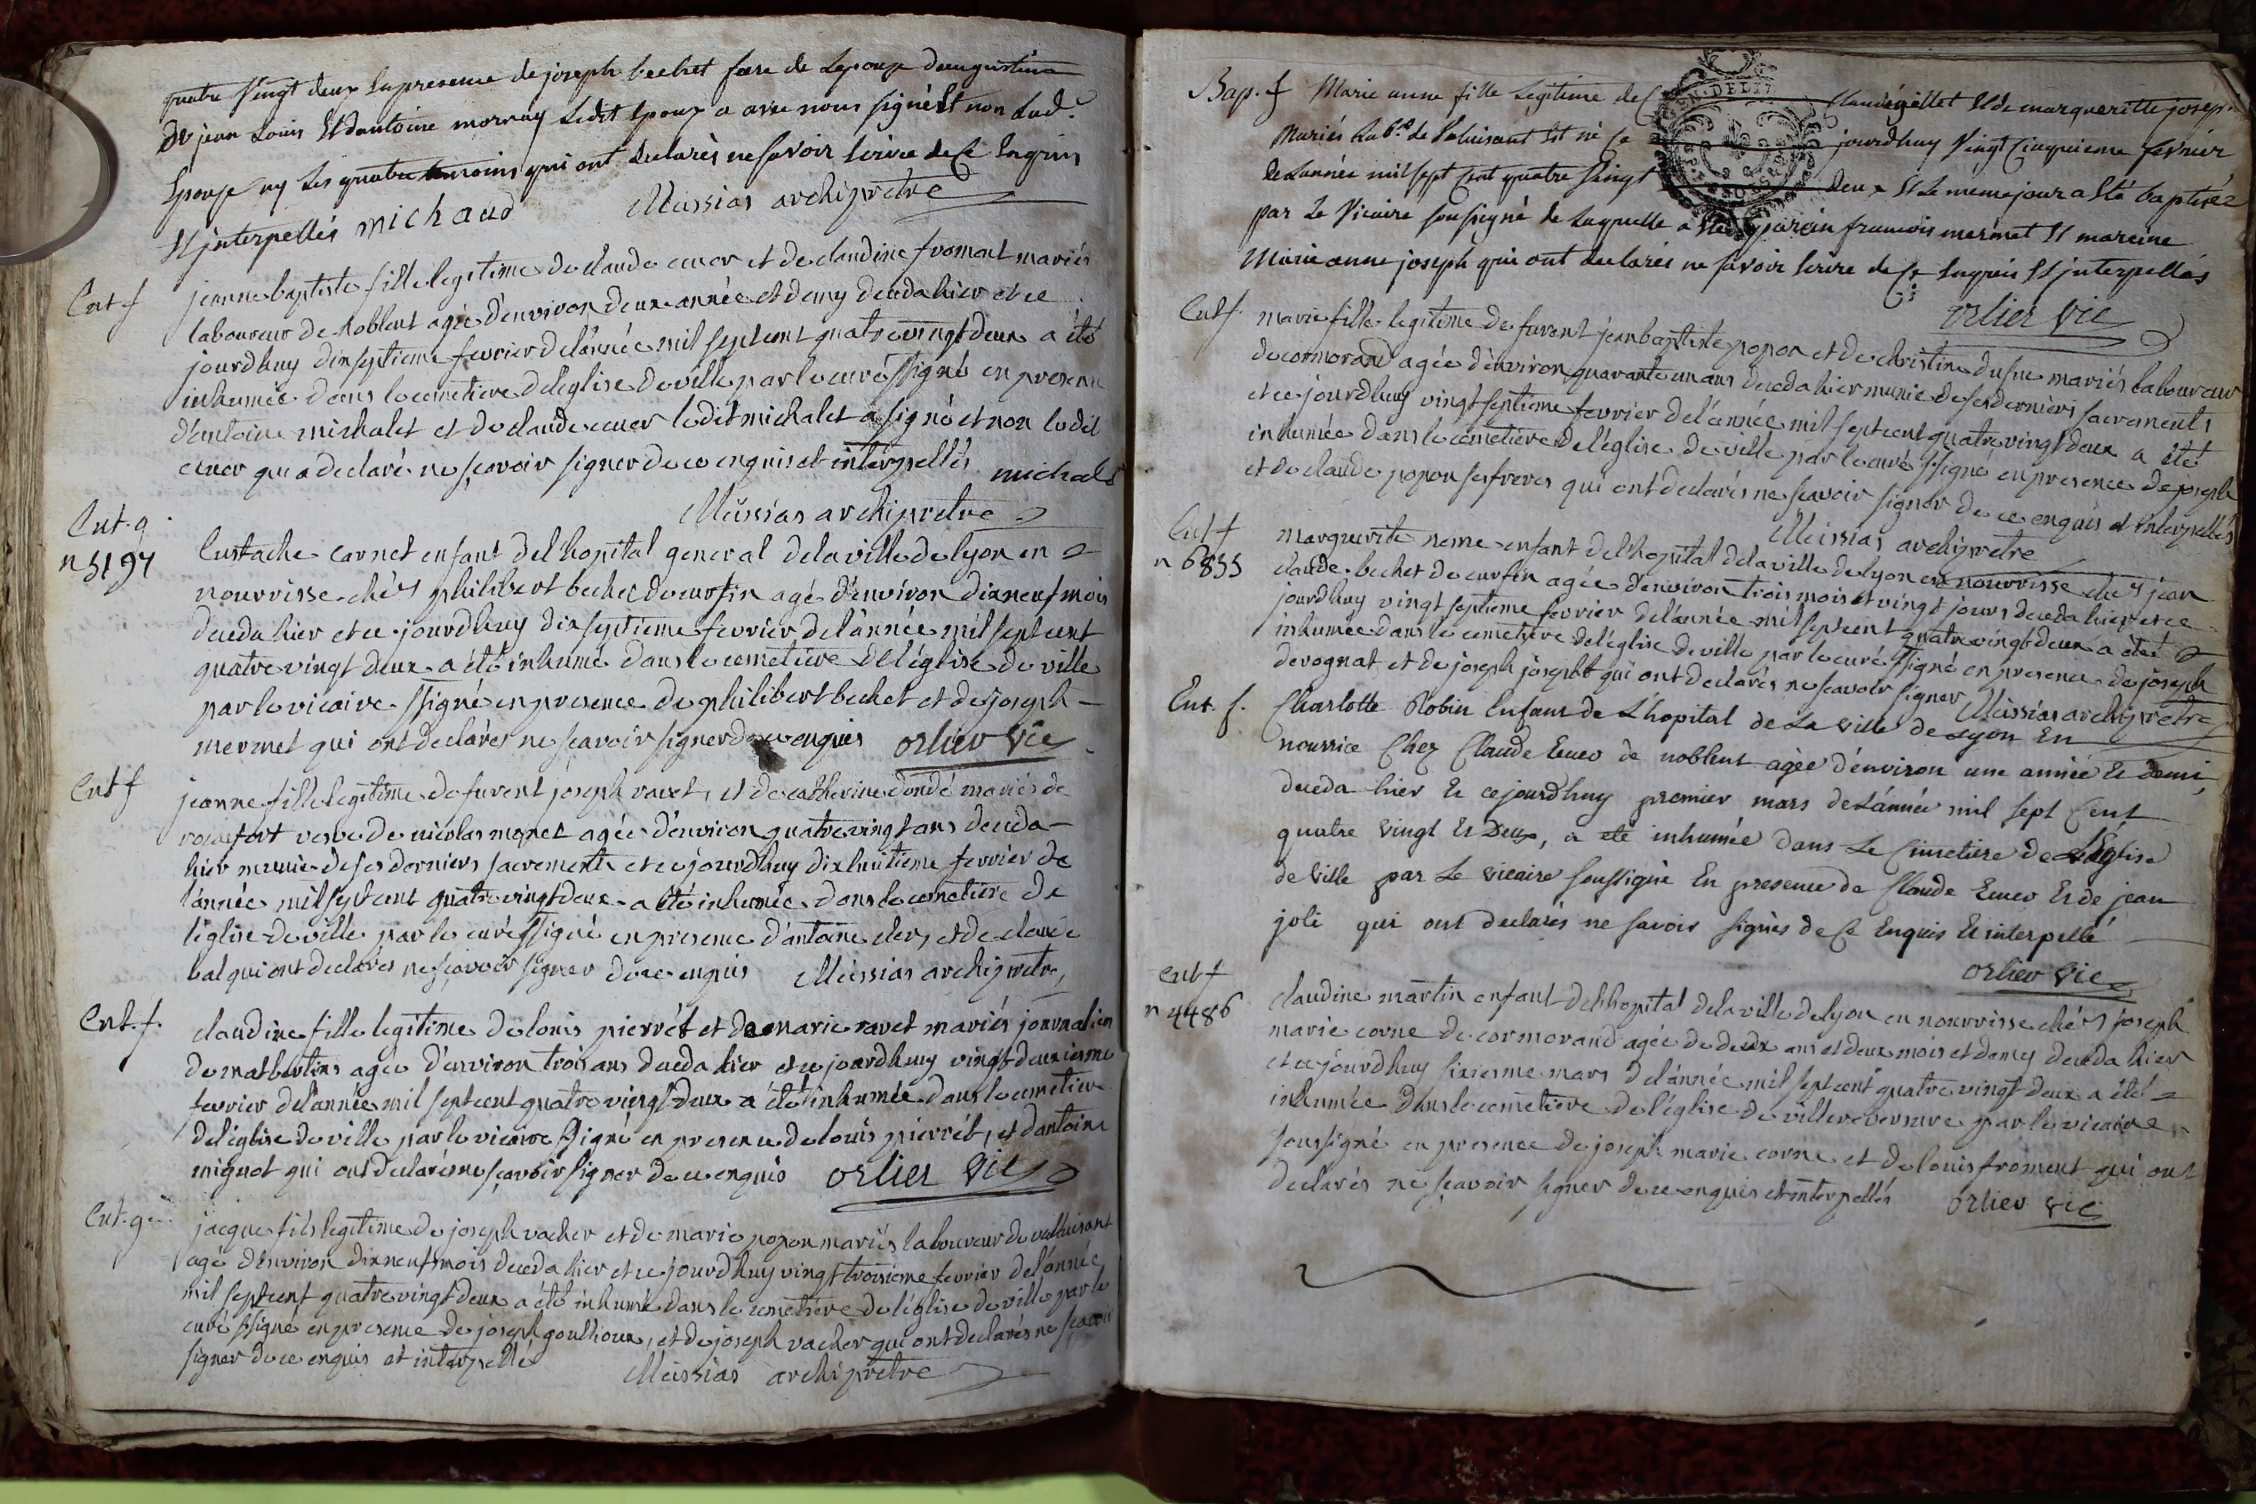 quatre vingt deux en presence de joseph bechet frere de Lepoux daugustin
de jean Louis Et dantoine mornay Ledit Epoux a avec nous signé Et non Lad.e
Epouse ny Les quatre temoins qui ont declarés ne savoir Ecrire de Ce Enquis
Et interpellés michaud Meissias archiprêtre
Ent. f
jeanne baptiste fille legitime de claude cuer et de claudine fromont mariés
laboureur de noblent agée d'environ deux année et demy deceda hier et ce
jourdhuy dixseptieme fevrier de l'année mil sept cent quatrevingt deux a été
inhumée dans le cemetiere de l'eglise de ville par le curé ssigné en presence
d'antoine michalet et de claude cuer ledit michalet a signé et non ledit
cuer qui a declaré ne sçavoir signer de ce enquis et interpellés michalet
Meissias archiprêtre
Ent. g
n 5197
Eustache carnet enfant de l'hopital general de la ville de lyon en
nourrisse chés philibert bechet de curfin agé d'environ dixneuf mois
deceda hier et ce jourdhuy dixseptieme fevrier de l'année mil sept cent
quatre vingt deux a été inhumé dans le cemetiere de l'église de ville
par le vicaire ssigné en presence de philibert bechet et de joseph
mermet qui ont declarés ne sçavoir signer de ce enquis orlier vic
Ent f
jeanne fille legitime de furent joseph ravet, et de catherine dondé mariés de
rochefort veuve de nicolas monet agée d'environ quatre vingt ans deceda
hier munie de ses derniers sacrements et ce jourdhuy dixhuitieme fevrier de
l'année mil sept cent quatre vingt deux a été inhumée dans le cemetiere de
l'église de ville par le curé ssigné en presence d'antoine clerc et de claude
bal qui ont declarés ne sçavoir signer de ce enquis Meissias archiprêtre
Ent. f.
claudine fille legitime de louis pierrét et de marie ravet mariés journalier
de matbertins agée d'environ trois ans deceda hier et ce jourdhuy vingt deuxieme
fevrier de l'année mil sept cent quatre vingt deux a été inhumée dans le cemetiere
de l'église de ville par le vicaire ssigné en presence de louis pierrét, et dantoine
miguet qui ont declarés ne sçavoir signer de ce enquis orlier vic
Ent. g
jacque fils legitime de joseph vacher et de marie popon mariés laboureur de valluisant
agé d'environ dixneuf mois deceda hier et ce jourdhuy vingt troisieme fevrier de l'année
mil sept cent quatre vingt deux a été inhumé dans le cemetiere de l'église de ville par le
curé ssigné en presence de joseph goulioux, et de joseph vacher qui ont declarés ne sçavoir
signer de ce enquis et interpellé Meissias archiprêtre
Bap. f
Marie anne fille Legitime de Claude gillet Et de marguerite joseph
Mariés Lab.rs de Valuisant Est né Ce jourdhuy Vingt Cinquieme fevrier
de Lannée mil sept Cent quatre Vingt deux Et Le meme jour a Eté baptisée
par Le Vicaire sousigné de Laquelle a Eté parein francois mermet Et mareine
Marie anne joseph qui ont declarés ne savoir Ecrire de Ce Enquis Et interpellés
orlier vic
Ent f.
marie fille legitime de furent jean baptiste popon et de christine dufne mariés laboureur
de cormorand agée d'environ quarante un ans deceda hier munie de ses derniers sacrements
et ce jourdhuy vingt septieme fevrier de l'année mil sept cent quatre vingt deux a été
inhumée dans le cemetiere de l'église de ville par le curé ssigné en presence de joseph
et de claude popon ses freres qui ont declarés ne sçavoir signer de ce enquis et interpellés
Meissias archiprêtre
Ent f
n 6855
marguerite neme enfant de l'hopital de la ville de lyon en nourrisse chés jean
claude bechet de curfin agée d'environ trois mois et vingt jours deceda hier et ce
jourdhuy vingt septieme fevrier de l'année mil sept cent quatre vingt deux a été
inhumée dans le cemetiere de l'église de ville par le curé ssigné en presence de joseph
devognat et de joseph joseph qui ont declarés ne sçavoir signer Meissias archiprêtre
Ent. f.
Charlotte Robin Enfant de L'hopital de La ville de Lyon En
nourrice Chez Claude Cuer de noblent agée d'environ une année Et demi,
deceda hier Et cejourdhuy premier mars de L'année mil sept Cent
quatre vingt Et Deux, a été inhumée dans Le Cimetiere de L'Eglise
de Ville par Le vicaire soussigné En presence de Claude Cuer Et de jean
joli qui ont declarés ne savoir signer de Ce Enquis Et interpellé
orlier vic
Ent f
n 4486
claudine martin enfant de l'hopital de la ville de lyon en nourrisse chés joseph
marie corne de cormorand agée de deux ans et deux mois et demy deceda hier
et ce jourdhuy sixieme mars de l'année mil sept cent quatre vingt deux a été
inhumée dans le cemetiere de l'église de villereversure par le vicaire
soussigné en presence de joseph marie corne et de louis froment qui ont
declarés ne sçavoir signer de ce enquis et interpellés orlier vic